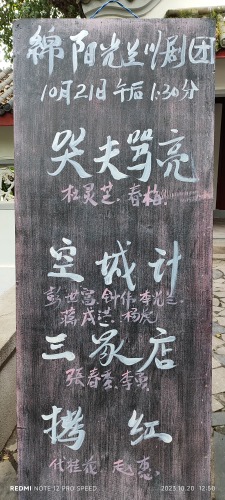 綿阳光兰川剧团
10月21日午后1:30分
哭夫骂亮
杜灵芝、春梅
空城计
彭世富 钟伟 李光兰
蒋成洪 杨虎
三家店
张春景、李勇
拷红
代桂花 赵惠
REDMI NOTE 12 PRO SPEED
2023.10.20 12:50